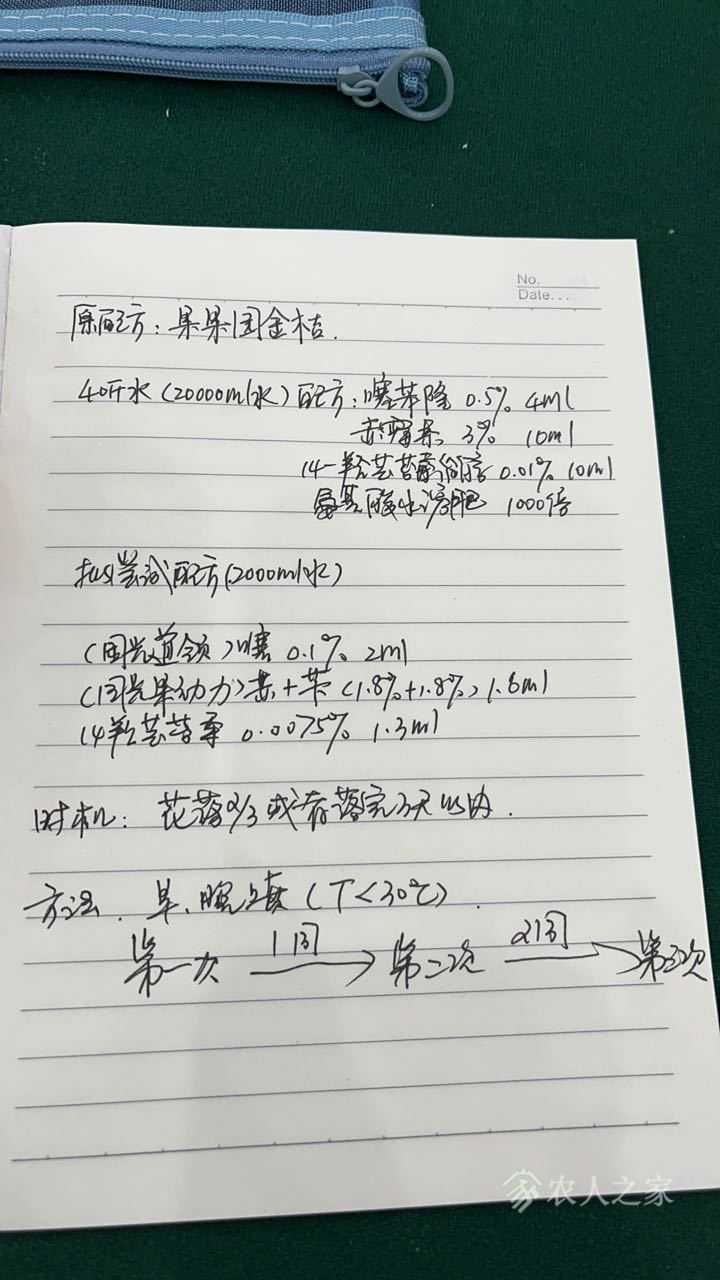 No.
Date...
原配方：果果园金桔.
40斤水（20000ml水）配方：噻苯隆 0.5% 4ml
赤霉素 3% 10ml
14-羟芸苔素甾醇 0.01% 10ml
氨基酸水溶肥 1000倍
拟尝试配方(2000ml水)
（国光道领）噻 0.1% 2ml
（国光果动力）赤+苄（1.8%+1.8%）1.6ml
14羟芸苔素 0.0075% 1.3ml
时机：花落2/3或者落完3天以内.
方法. 早、晚喷（T<30℃）.
第一次 1周 第二次 2周 第三次
农人之家